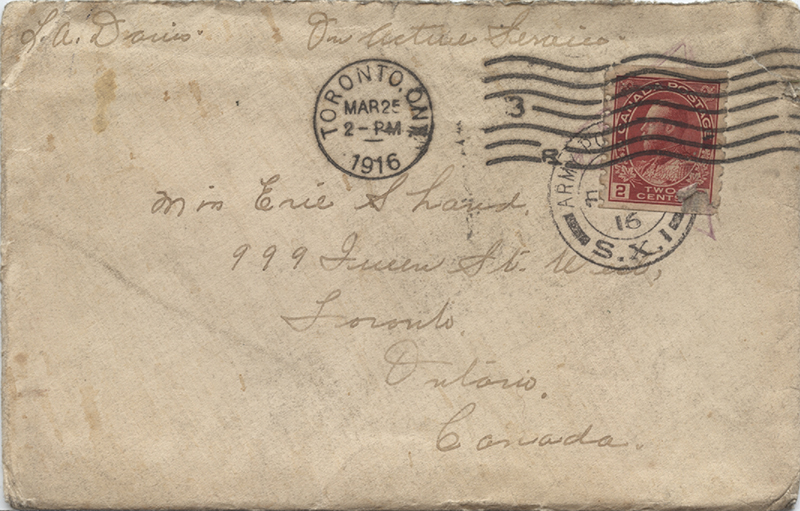 On Active Service.
TORONTO, ONT
MAR 25
2 - PM
1916
3
CANADA POSTAGE
2 TWO CENTS 2
ARMY
16
S.X.1
Miss Erie Shand.
999 Queen St. West,
Toronto.
Ontario.
Canada.